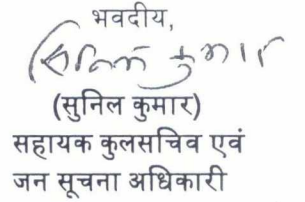 भवदीय,
सुनिल कुमार
(सुनिल कुमार)
सहायक कुलसचिव एवं
जन सूचना अधिकारी